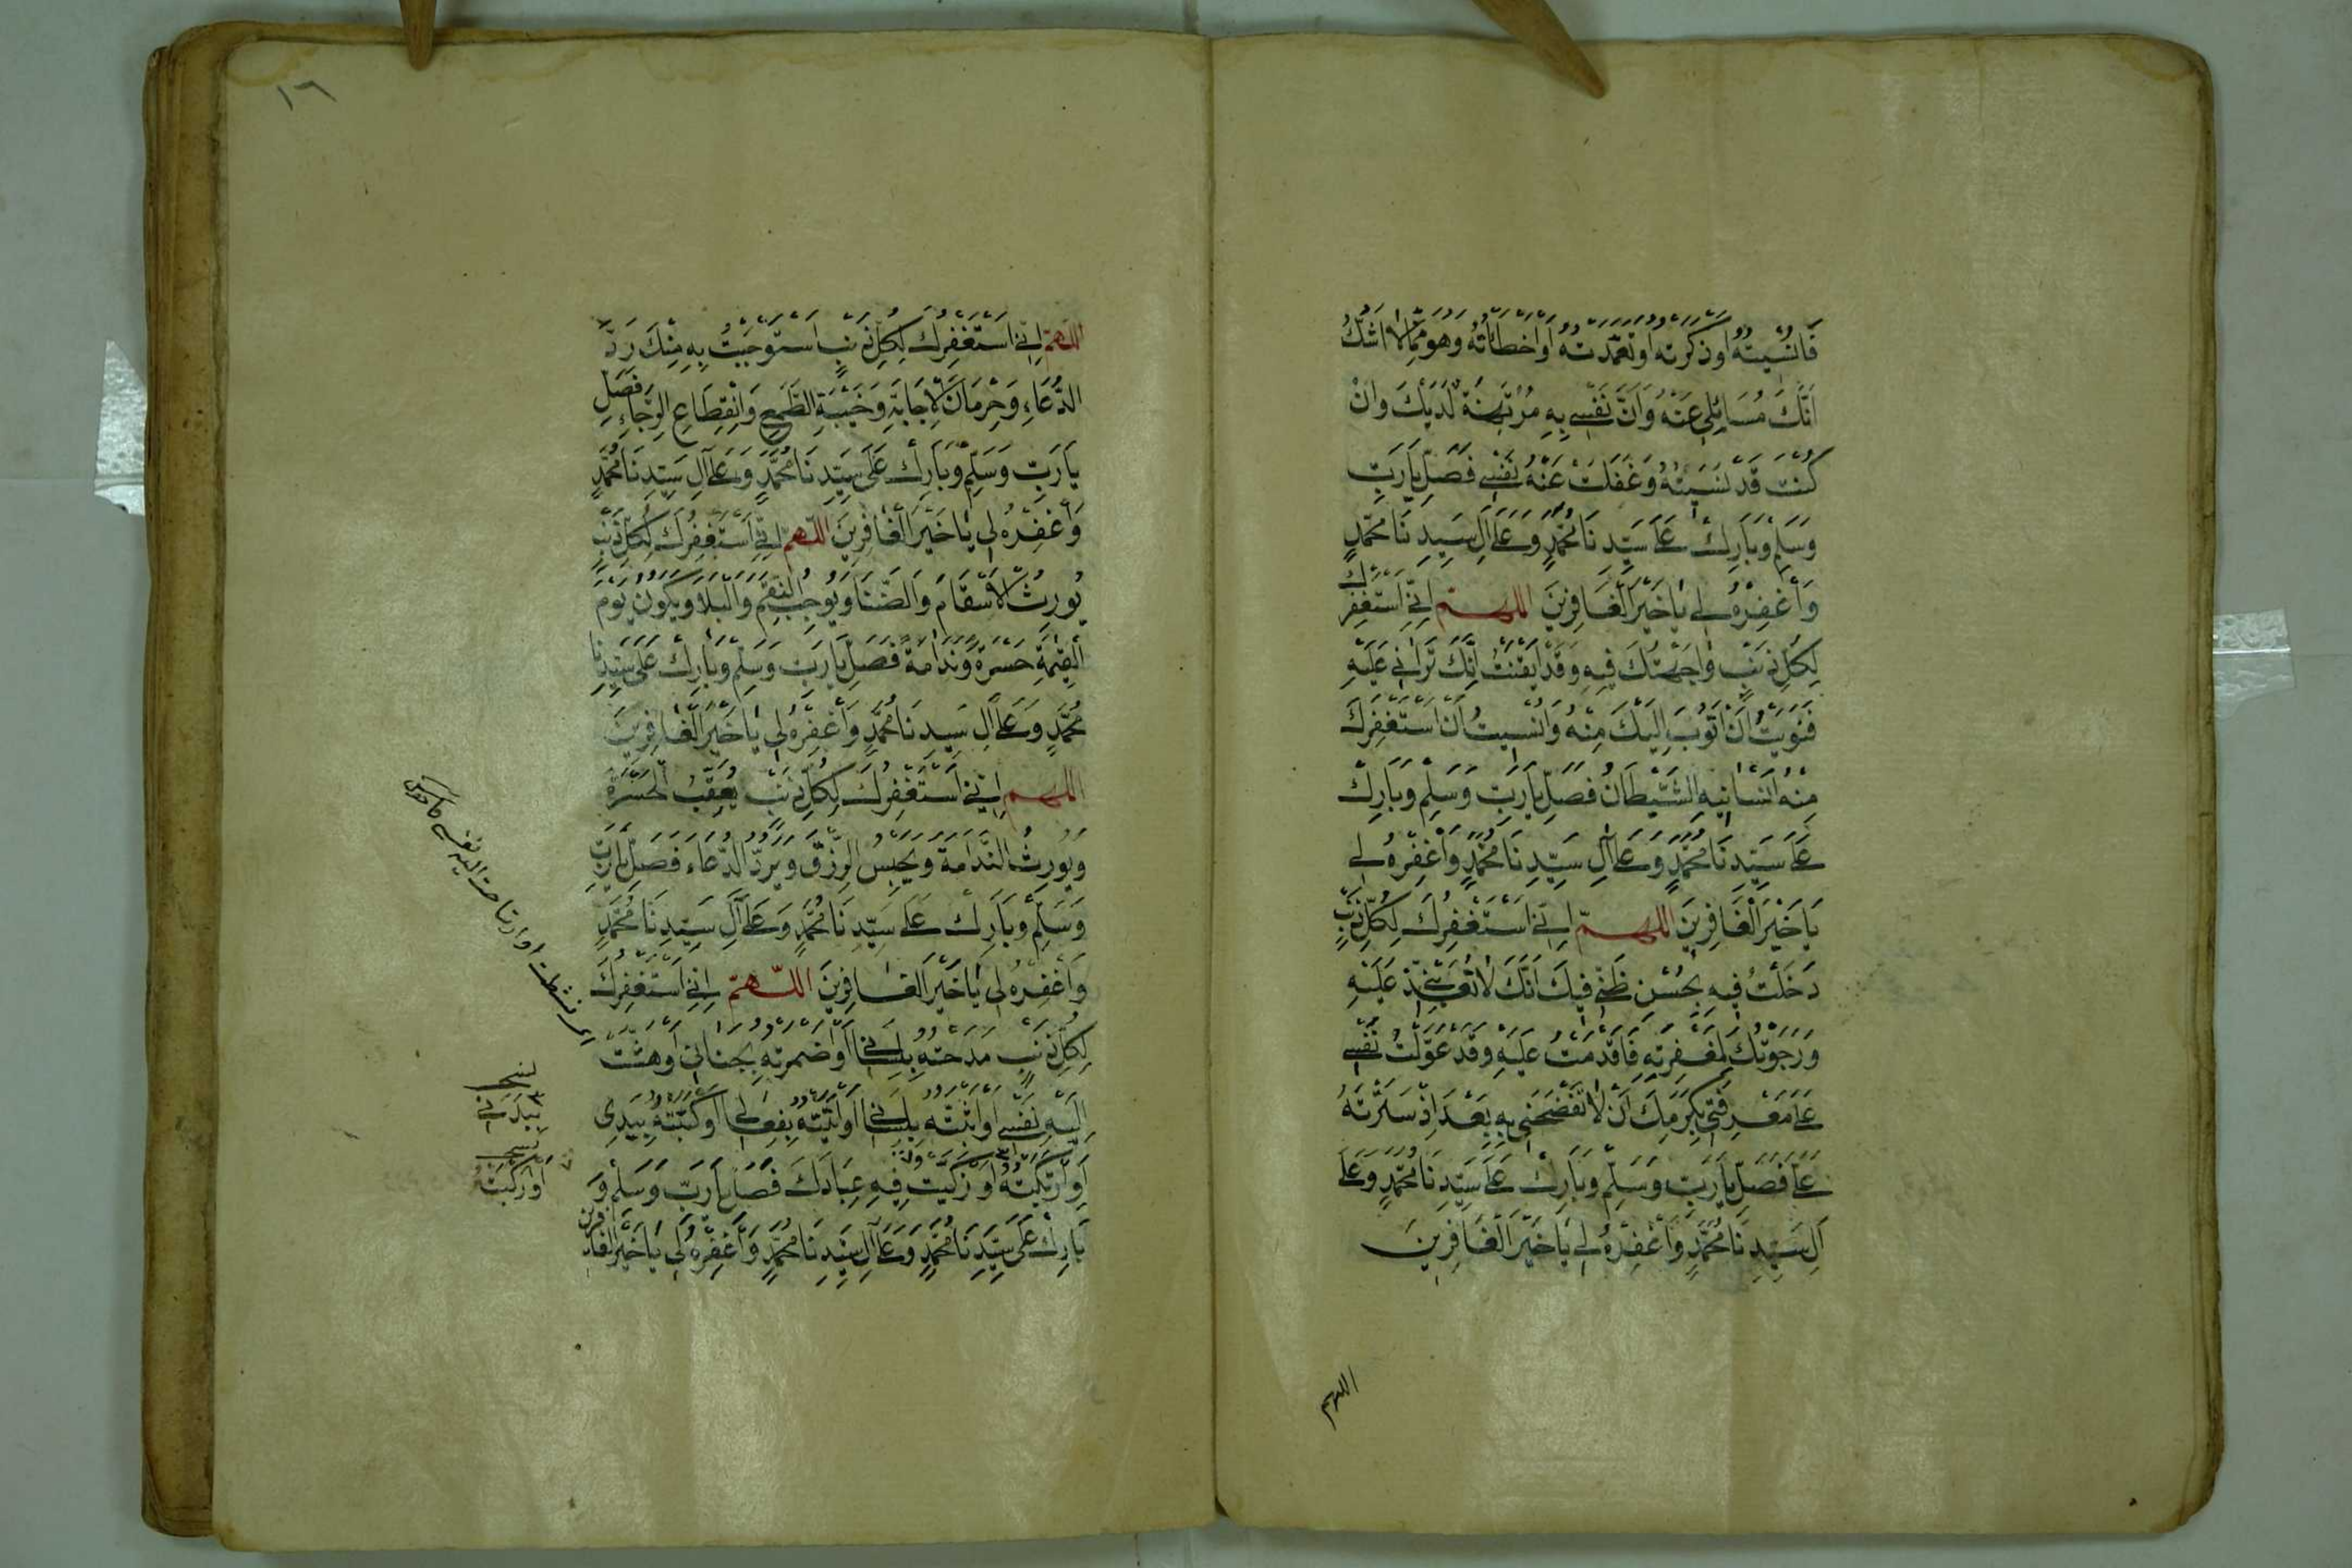 فَانْسَيْتُهُ اَوْ ذَكَرْتُهُ اَوْ تَعَمَّدْتُهُ اَوْ اَخْطَاْتُهُ وَهُوَ مِمَّا لَا اَشُكُّ
اَنَّكَ مُسَائِلِي عَنْهُ وَاَنَّ نَفْسِي بِهِ مُرْتَهَنَةٌ لَدَيْكَ وَاِنْ
كُنْتُ قَدْ نَسِيْتُهُ وَغَفَلَتْ عَنْهُ نَفْسِي فَصَلِّ يَا رَبِّ
وَسَلِّمْ وَبَارِكْ عَلَى سَيِّدِنَا مُحَمَّدٍ وَعَلَى آلِ سَيِّدِنَا مُحَمَّدٍ
وَاغْفِرْهُ لِي يَا خَيْرَ الْغَافِرِينَ اللهم اِنِّي اَسْتَغْفِرُكَ
لِكُلِّ ذَنْبٍ وَاجَهْتُكَ فِيهِ وَقَدْ اَيْقَنْتُ اَنَّكَ تَرَانِي عَلَيْهِ
فَنَوَيْتُ اَنْ اَتُوبَ اِلَيْكَ مِنْهُ وَاُنْسِيتُ اَنْ اَسْتَغْفِرَكَ
مِنْهُ اَنْسَانِيهِ الشَّيْطَانُ فَصَلِّ يَا رَبِّ وَسَلِّمْ وَبَارِكْ
عَلَى سَيِّدِنَا مُحَمَّدٍ وَعَلَى آلِ سَيِّدِنَا مُحَمَّدٍ وَاغْفِرْهُ لِي
يَا خَيْرَ الْغَافِرِينَ اللهم اِنِّي اَسْتَغْفِرُكَ لِكُلِّ ذَنْبٍ
دَخَلْتُ فِيهِ بِحُسْنِ ظَنِّي فِيكَ اَنَّكَ لَا تُعَذِّبُنِي عَلَيْهِ
وَرَجَوْتُكَ لِمَغْفِرَتِهِ فَاَقْدَمْتُ عَلَيْهِ وَقَدْ عَوَّلْتُ نَفْسِي
عَلَى مَعْرِفَتِي بِكَرَمِكَ اَنْ لَا تَفْضَحَنِي بِهِ بَعْدَ اِذْ سَتَرْتَهُ
عَلَيَّ فَصَلِّ يَا رَبِّ وَسَلِّمْ وَبَارِكْ عَلَى سَيِّدِنَا مُحَمَّدٍ وَعَلَى
آلِ سَيِّدِنَا مُحَمَّدٍ وَاغْفِرْهُ لِي يَا خَيْرَ الْغَافِرِينَ
اللهم
١٦
اللهم اِنِّي اَسْتَغْفِرُكَ لِكُلِّ ذَنْبٍ اسْتَوْجَبْتُ بِهِ مِنْكَ رَدَّ
الدُّعَاءِ وَحِرْمَانَ الْاِجَابَةِ وَخَيْبَةِ الطَّمَعِ وَانْقِطَاعِ الرَّجَاءِ فَصَلِّ
يَا رَبِّ وَسَلِّمْ وَبَارِكْ عَلَى سَيِّدِنَا مُحَمَّدٍ وَعَلَى آلِ سَيِّدِنَا مُحَمَّدٍ
وَاغْفِرْهُ لِي يَا خَيْرَ الْغَافِرِينَ اللهم اِنِّي اَسْتَغْفِرُكَ لِكُلِّ ذَنْبٍ
يُورِثُ الْاَسْقَامَ وَالضَّنَا وَيُوجِبُ النِّقَمَ وَالْبَلَا وَيَكُونُ يَوْمَ
الْقِيمَةِ حَسْرَةً وَنَدَامَةً فَصَلِّ يَا رَبِّ وَسَلِّمْ وَبَارِكْ عَلَى سَيِّدِنَا
مُحَمَّدٍ وَعَلَى آلِ سَيِّدِنَا مُحَمَّدٍ وَاغْفِرْهُ لِي يَا خَيْرَ الْغَافِرِينَ
اللهم اِنِّي اَسْتَغْفِرُكَ لِكُلِّ ذَنْبٍ يُعَقِّبُ الْحَسْرَةَ
وَيُورِثُ النَّدَامَةَ وَيَحْبِسُ الرِّزْقَ وَيَرُدُّ الدُّعَاءَ فَصَلِّ يَا رَبِّ
وَسَلِّمْ وَبَارِكْ عَلَى سَيِّدِنَا مُحَمَّدٍ وَعَلَى آلِ سَيِّدِنَا مُحَمَّدٍ
وَاغْفِرْهُ لِي يَا خَيْرَ الْغَافِرِينَ اللّهمّ اِنِّي اَسْتَغْفِرُكَ
لِكُلِّ ذَنْبٍ مَدَحْتُهُ بِلِسَانِي اَوْ اَضْمَرْتُهُ بِجِنَانِي اَوْ هَشَّتْ
اِلَيْهِ نَفْسِي اَوْ اَثْبَتُّهُ بِلِسَانِي اَوْ اَتَيْتُهُ بِفِعَالِي اَوْ كَتَبْتُهُ بِيَدِي
اَوِ ارْتَكَبْتُهُ اَوْ فِيهِ عِبَادَكَ فَصَلِّ يَا رَبِّ وَسَلِّمْ وَ
بَارِكْ عَلَى سَيِّدِنَا مُحَمَّدٍ وَعَلَى آلِ سَيِّدِنَا مُحَمَّدٍ وَاغْفِرْهُ لِي يَا خَيْرَ الْغَافِرِينَ
اى نشطت او ارتاحت اليه نفسى
نسخه
بِيَدَنِي
نسخه